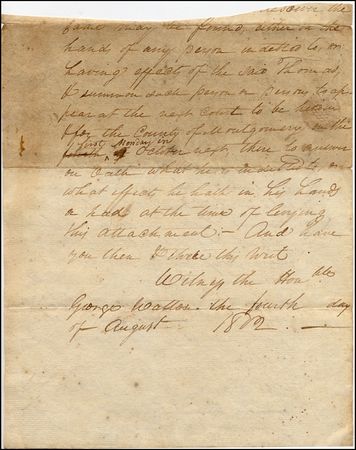 the
same may be found, either in the
hand of any person indebted to, or
having effects of the said Thomas
& summon such person or persons to ap
pear at the next Court to be
for the County of Montgomery on the
first Monday in
October next there to answer
on Oath what he is indebted to or
what effects he hath in his hands
or had at the time of levying
this attachment — And have
you then & there this Writ.
Witness the Honble
George Walton the fourth day
of August 1802. —